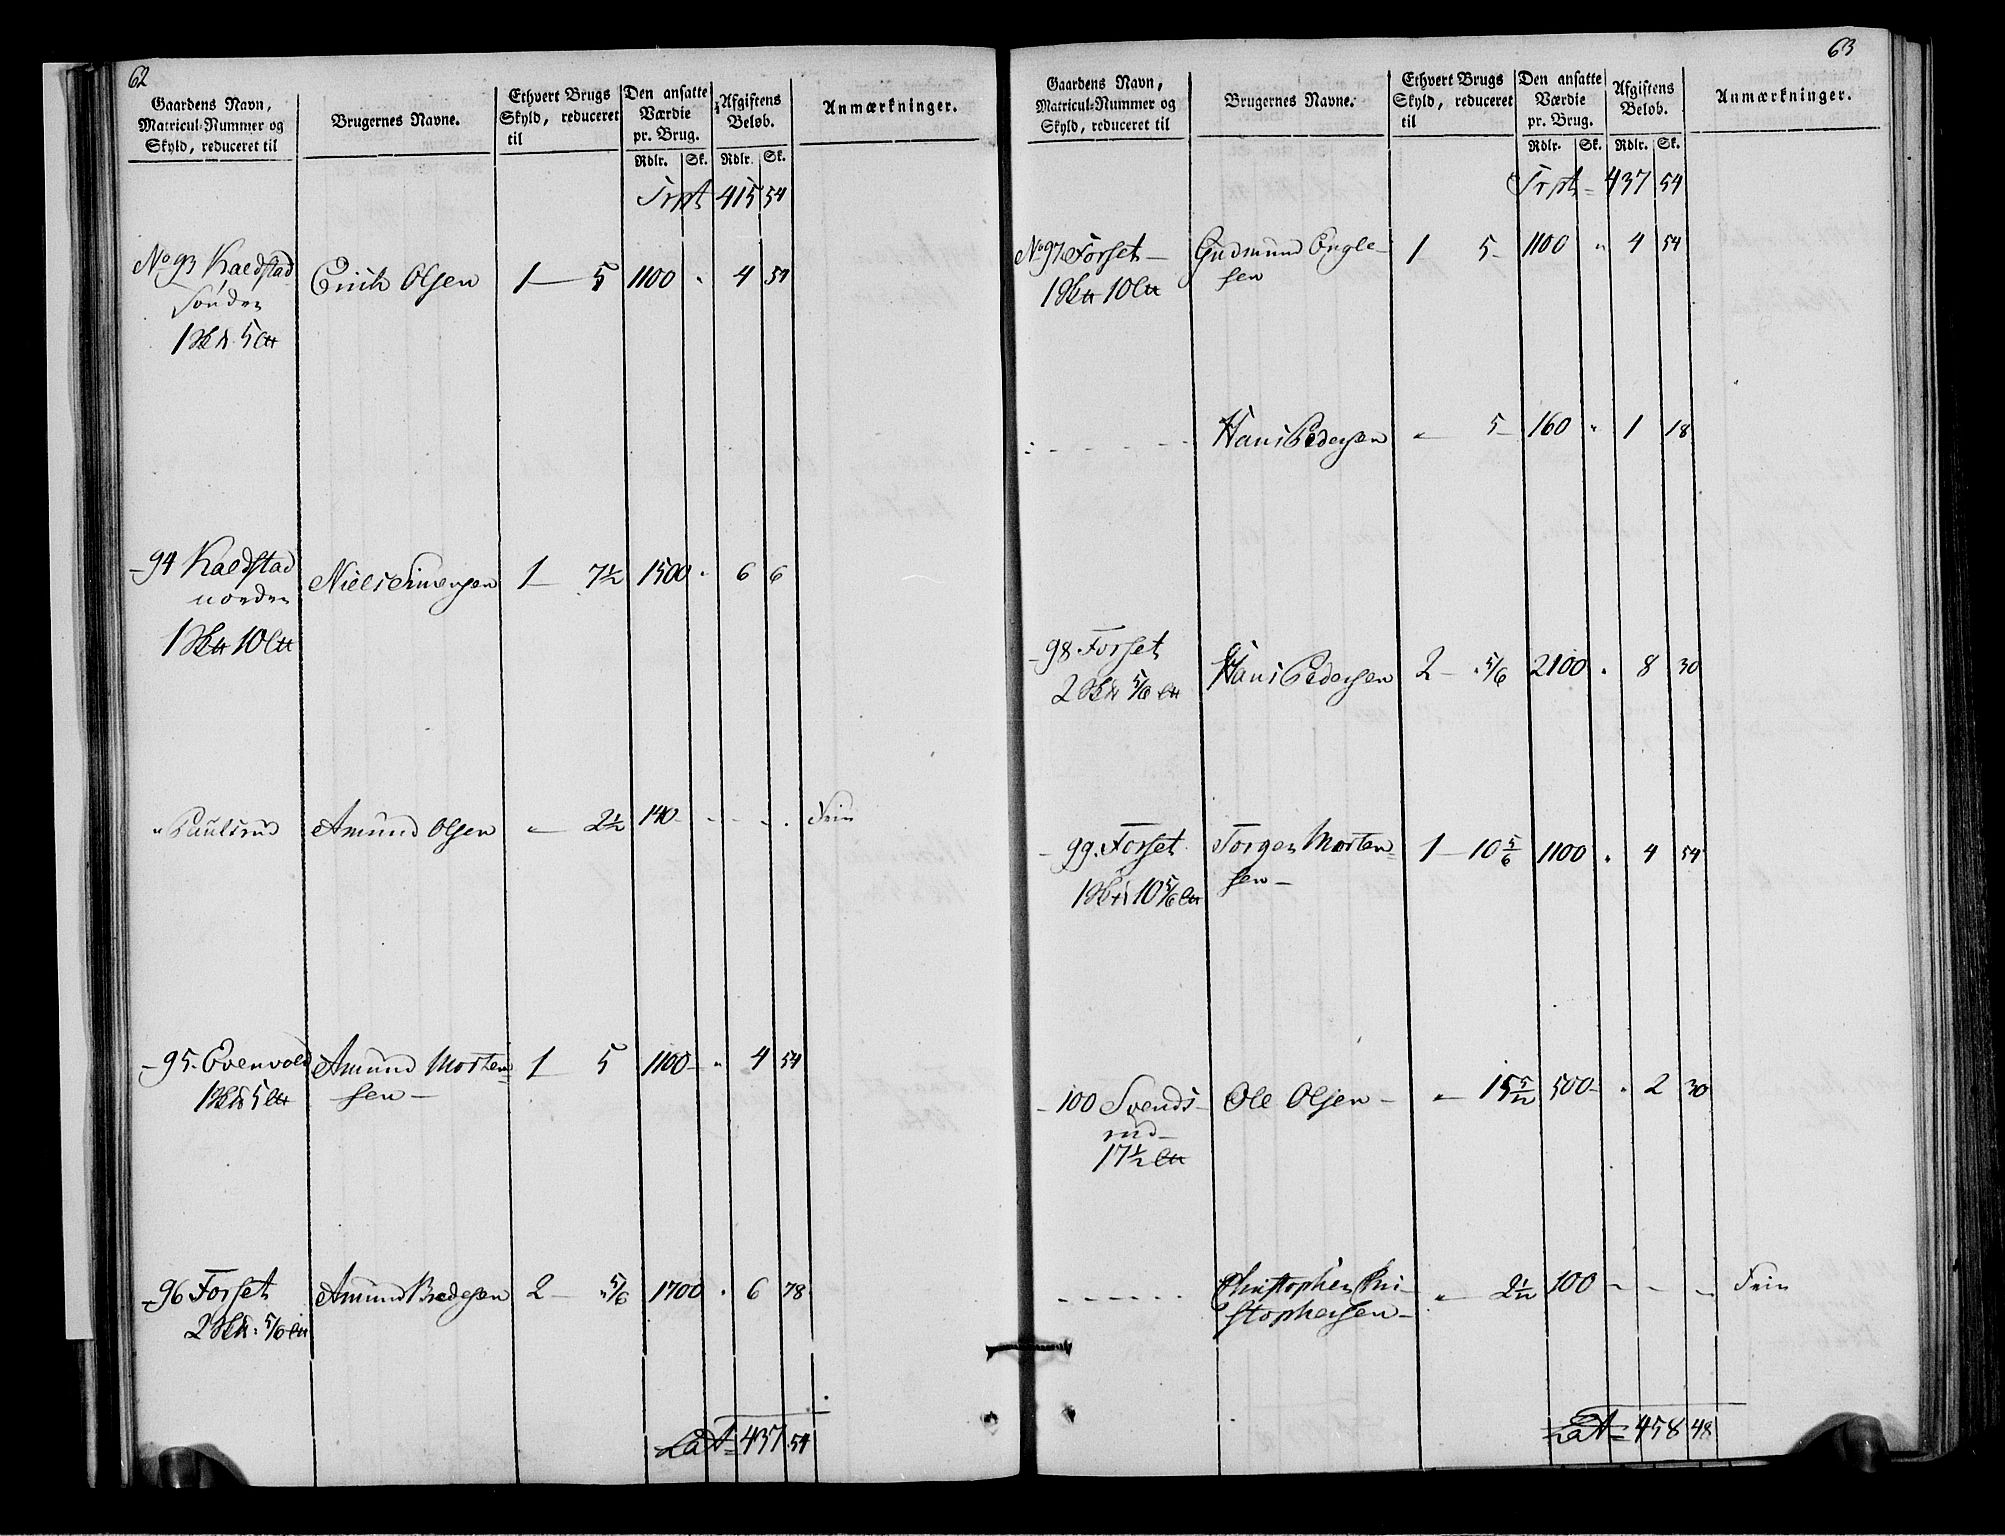 62
Gaardens Navn, Matricul-Nummer og Skyld, reduceret til | Brugernes Navne. | Ethvert Brugs Skyld, reduceret til | Den ansatte Værdie pr. Brug. Rdlr. Sk. | Afgiftens Beløb. Rdlr. Sk. | Anmærkninger.
Trpt 415 54
No 93 Kaldstad Erich Olsen 1 — 5 1100 " 4 54
Sønder
1 5
- 94 Kaldstad Niels Simensen 1 — 7½ 1500 " 6 6
norden
1 10
" Paulsrud Amund Olsen " — 2½ 140 - - - - Frie
- 95. Evenvold Amund Morten= 1 — 5 1100 - " 4 54
1 5 sen —
- 96 Forset Amund Bredesen 2 — " 5/6 1700 " 6 78
2 5/6
Lat= 437 54
63
Gaardens Navn, Matricul-Nummer og Skyld, reduceret til | Brugernes Navne. | Ethvert Brugs Skyld, reduceret til | Den ansatte Værdie pr. Brug. Rdlr. Sk. | Afgiftens Beløb. Rdlr. Sk. | Anmærkninger.
Trpt - 437 54
No 97 Forset — Gudmund Engle- 1 5 - 1100 " 4 54
1 10 sen
- - - - - Hans Pedersen " — 5 - 160 " 1 18
- 98 Forset Hans Pedersen 2 — " 5/6 2100 " 8 30
2 5/6
- 99. Forset Torger Morten= 1 — 10 5/6 1100 " 4 54
1 10 5/6 sen —
- 100 Svends- Ole Olsen — " — 15 5/12 500 - " 2 30
rud —
17½
- - - - - - Christopher Chri- " — 2 1/12 100 - - - Frie
stophersen —
Lat= 458 48